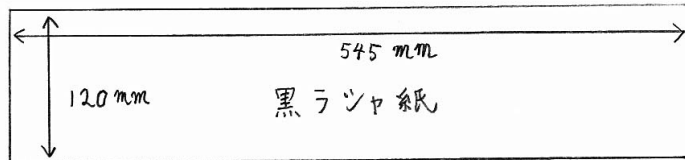 545 mm
120 mm
黒ラシャ紙